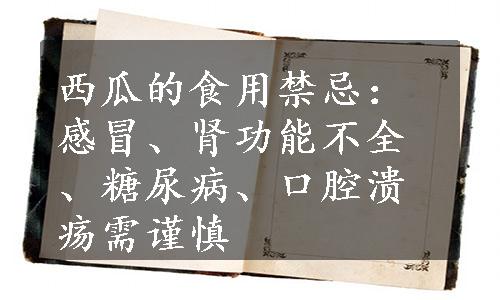 西瓜的食用禁忌：
感冒、肾功能不全
、糖尿病、口腔溃
疡需谨慎